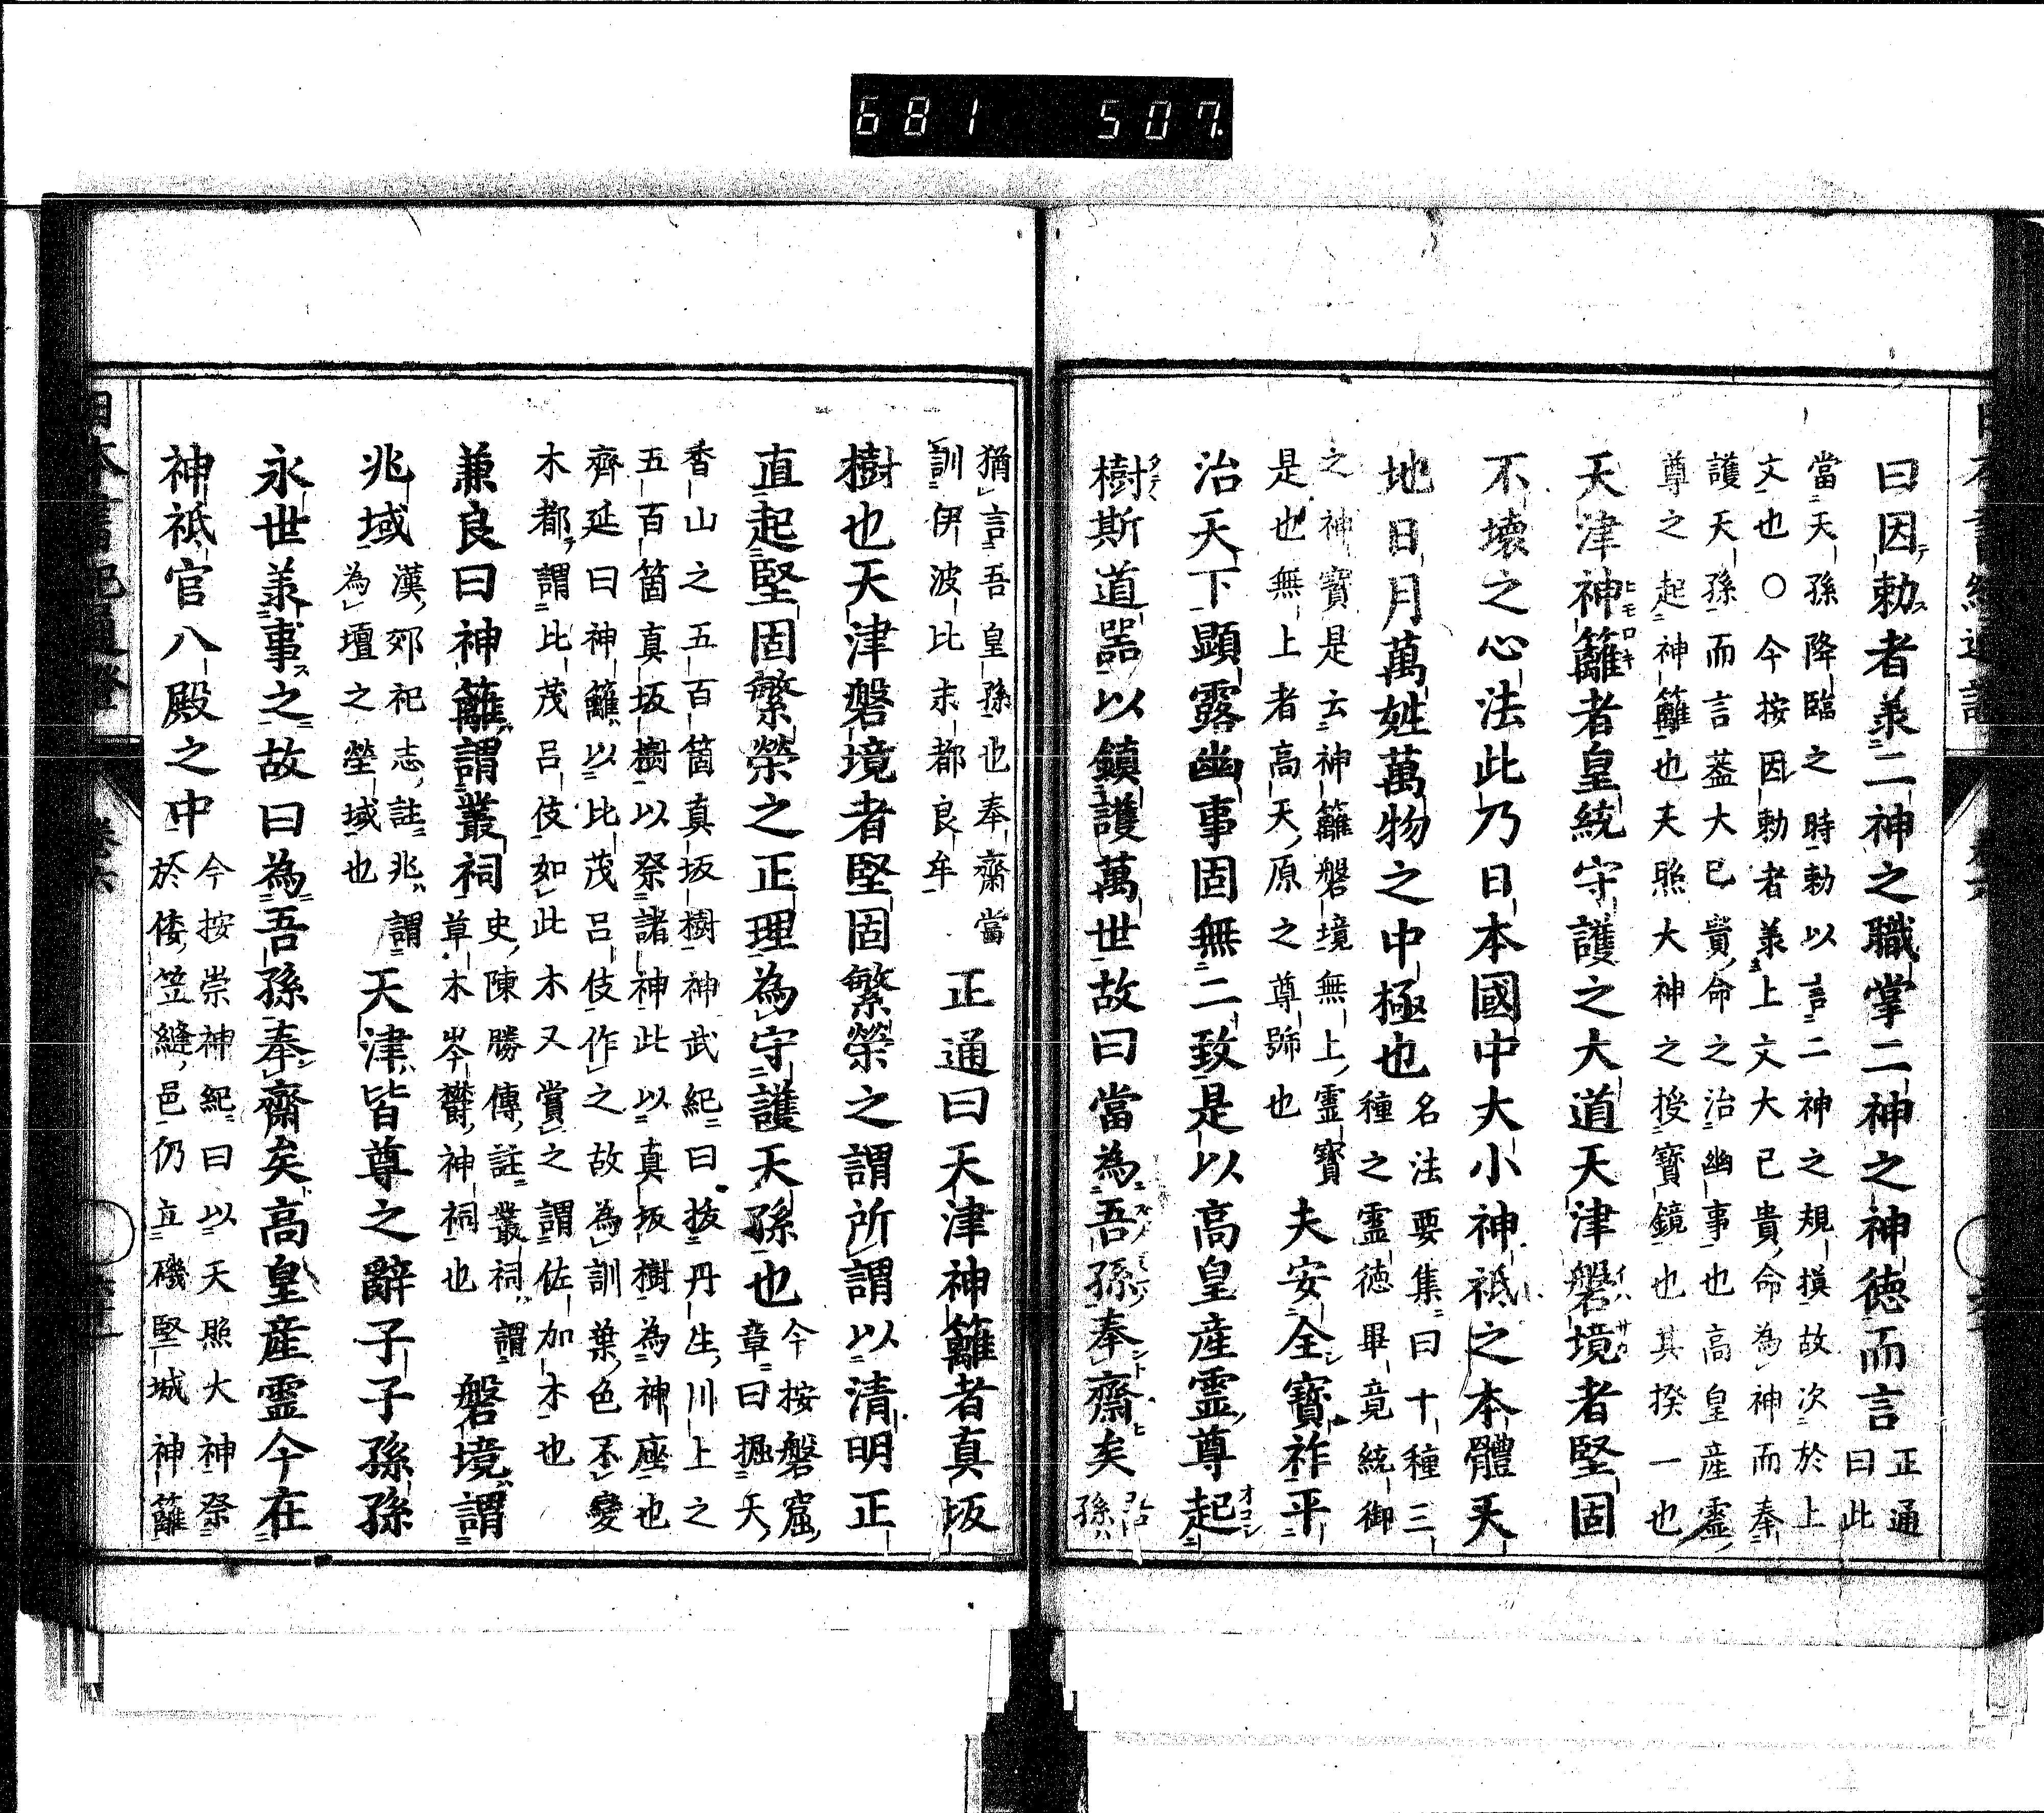 681 507.
曰因勅者兼二神之職掌二神之神徳而言 正通曰此
當天孫降臨之時勅以言二神之規摸故次於上
文也○今按因勅者兼上文大已貴命為神而奉
護天孫而言葢大已貴命之治幽事也高皇産靈
尊之起神籬也夫照大神之授寶鏡也其揆一也
天津神籬者皇統守護之大道天津磐境者堅固
不壊之心法此乃日本國中大小神祇之本體天
地日月萬姓萬物之中極也 名法要集曰十種三
種之霊徳畢竟統御
之神寶是云神籬磐境無上霊寶
是也無上者高天原之尊號也
夫安全寶祚平
治天下顕露幽事固無二致是以高皇産霊尊起
樹斯道噐以鎮護萬世故曰當為吾孫奉齋矣
猶言吾皇孫也奉齋當
訓伊波比末都良牟
正通曰天津神籬者真坂
樹也天津磐境者堅固繁榮之謂所謂以清明正
直起堅固繁榮之正理為守護天孫也 今按磐窟
章曰掘天
香山之五百箇真坂樹神武紀曰抜丹生川上之
五百箇真坂樹以祭諸神此以真坂樹為神座也
齊延曰神籬以比茂呂伎作之故為訓葉色不變
木都謂比茂呂伎如此木又賞之謂佐加木也
兼良曰神籬謂叢祠 史陳勝傳註叢祠謂
草木岑欝神祠也
磐境謂
兆域 漢郊祀志註兆謂
為壇之塋域也
天津皆尊之辭子子孫孫
永世兼事之故曰為吾孫奉齋矣高皇産霊今在
神祇官八殿之中 今按崇神紀曰以天照大神祭
於倭笠縫邑仍立磯堅城神籬